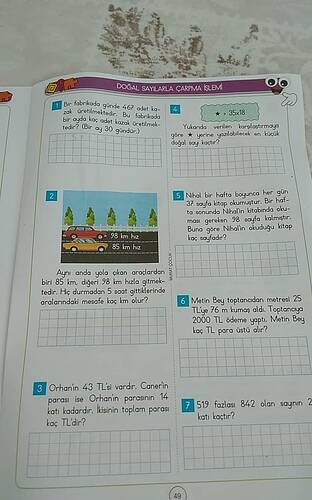 DOĞAL SAYILARLA ÇARPMA İŞLEMİ
1
Bir fabrikada günde 467 adet ka-
zak üretilmektedir. Bu fabrikada
bir ayda kaç adet kazak üretilmek-
tedir? (Bir ay 30 gündür.)
2
98 km hız
85 km hız
Aynı anda yola çıkan araçlardan
biri 85 km, diğeri 98 km hızla gitmek-
tedir. Hiç durmadan 5 saat gittiklerinde
aralarındaki mesafe kaç km olur?
3
Orhan'ın 43 TL'si vardır. Caner'in
parası ise Orhan'ın parasının 14
katı kadardır. İkisinin toplam parası
kaç TL'dir?
4
35x18
Yukarıda verilen karşılaştırmaya
göre ★ yerine yazılabilecek en küçük
doğal sayı kaçtır?
5
Nihal bir hafta boyunca her gün
37 sayfa kitap okumuştur. Bir haf-
ta sonunda Nihal'in kitabında oku-
ması gereken 98 sayfa kalmıştır.
Buna göre Nihal'in okuduğu kitap
kaç sayfadır?
6
Metin Bey toptancıdan metresi 25
TL'ye 76 m kumaş aldı. Toptancıya
2000 TL ödeme yaptı. Metin Bey
kaç TL para üstü alır?
7
519 fazlası 842 olan sayının 2
katı kaçtır?
49